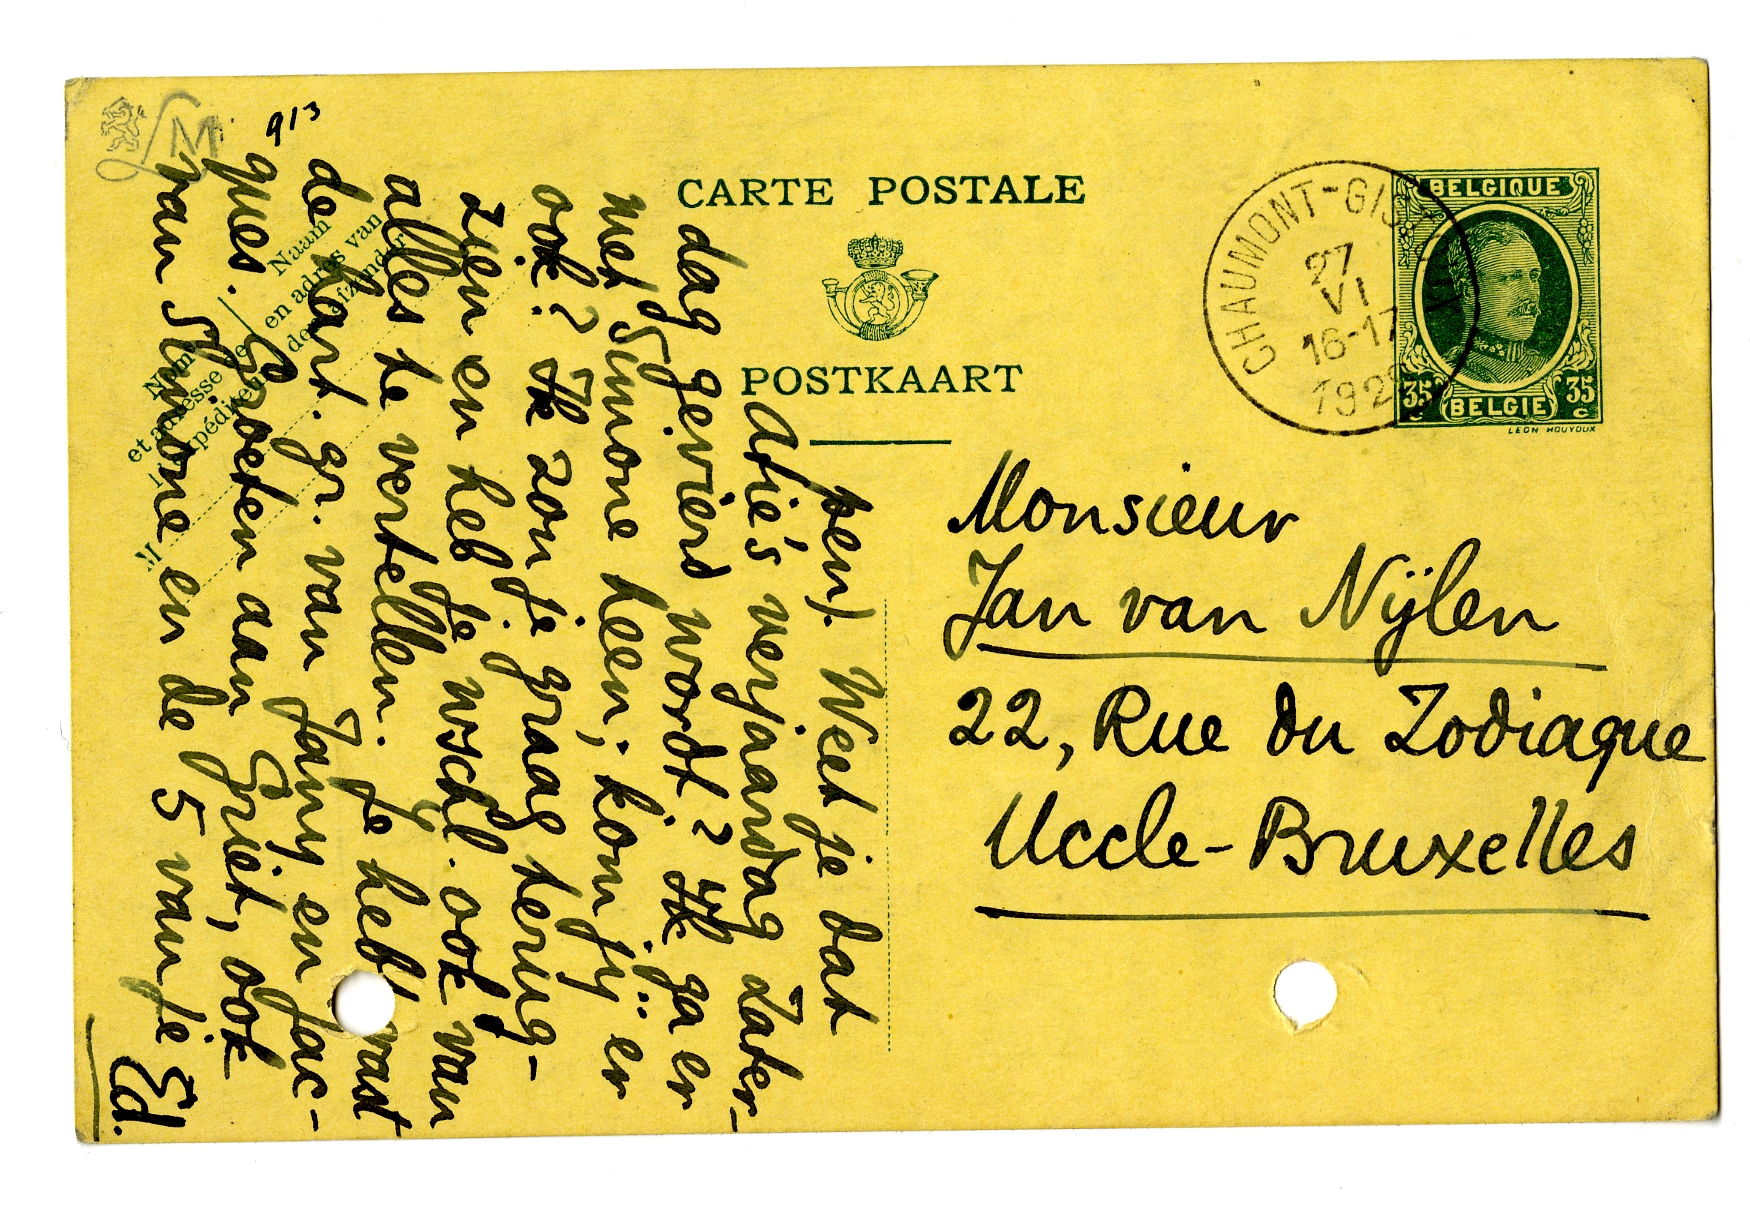 913
CARTE POSTALE
POSTKAART
BELGIQUE
35 c 35 c
BELGIE
LEON HOUYOUX
CHAUMONT-GIS
27
VI
16-17
192
Monsieur
Jan van Nijlen
22, Rue du Zodiaque
Uccle-Bruxelles
Naam
en adres van
den afzender
Nom
et adresse de
l'expéditeur
M
ben). Weet je dat
Atie's verjaardag Zater-
dag gevierd wordt? Ik ga er
met Simone heen; kom jij er
ook? Ik zou je graag terug-
zien en heb je wschl. ook van
alles te vertellen. Je hebt vast
de kaart. gr. van Jany en Jac-
ques. Groeten aan Griet, ook
van Simone en de 5 van je
Ed.